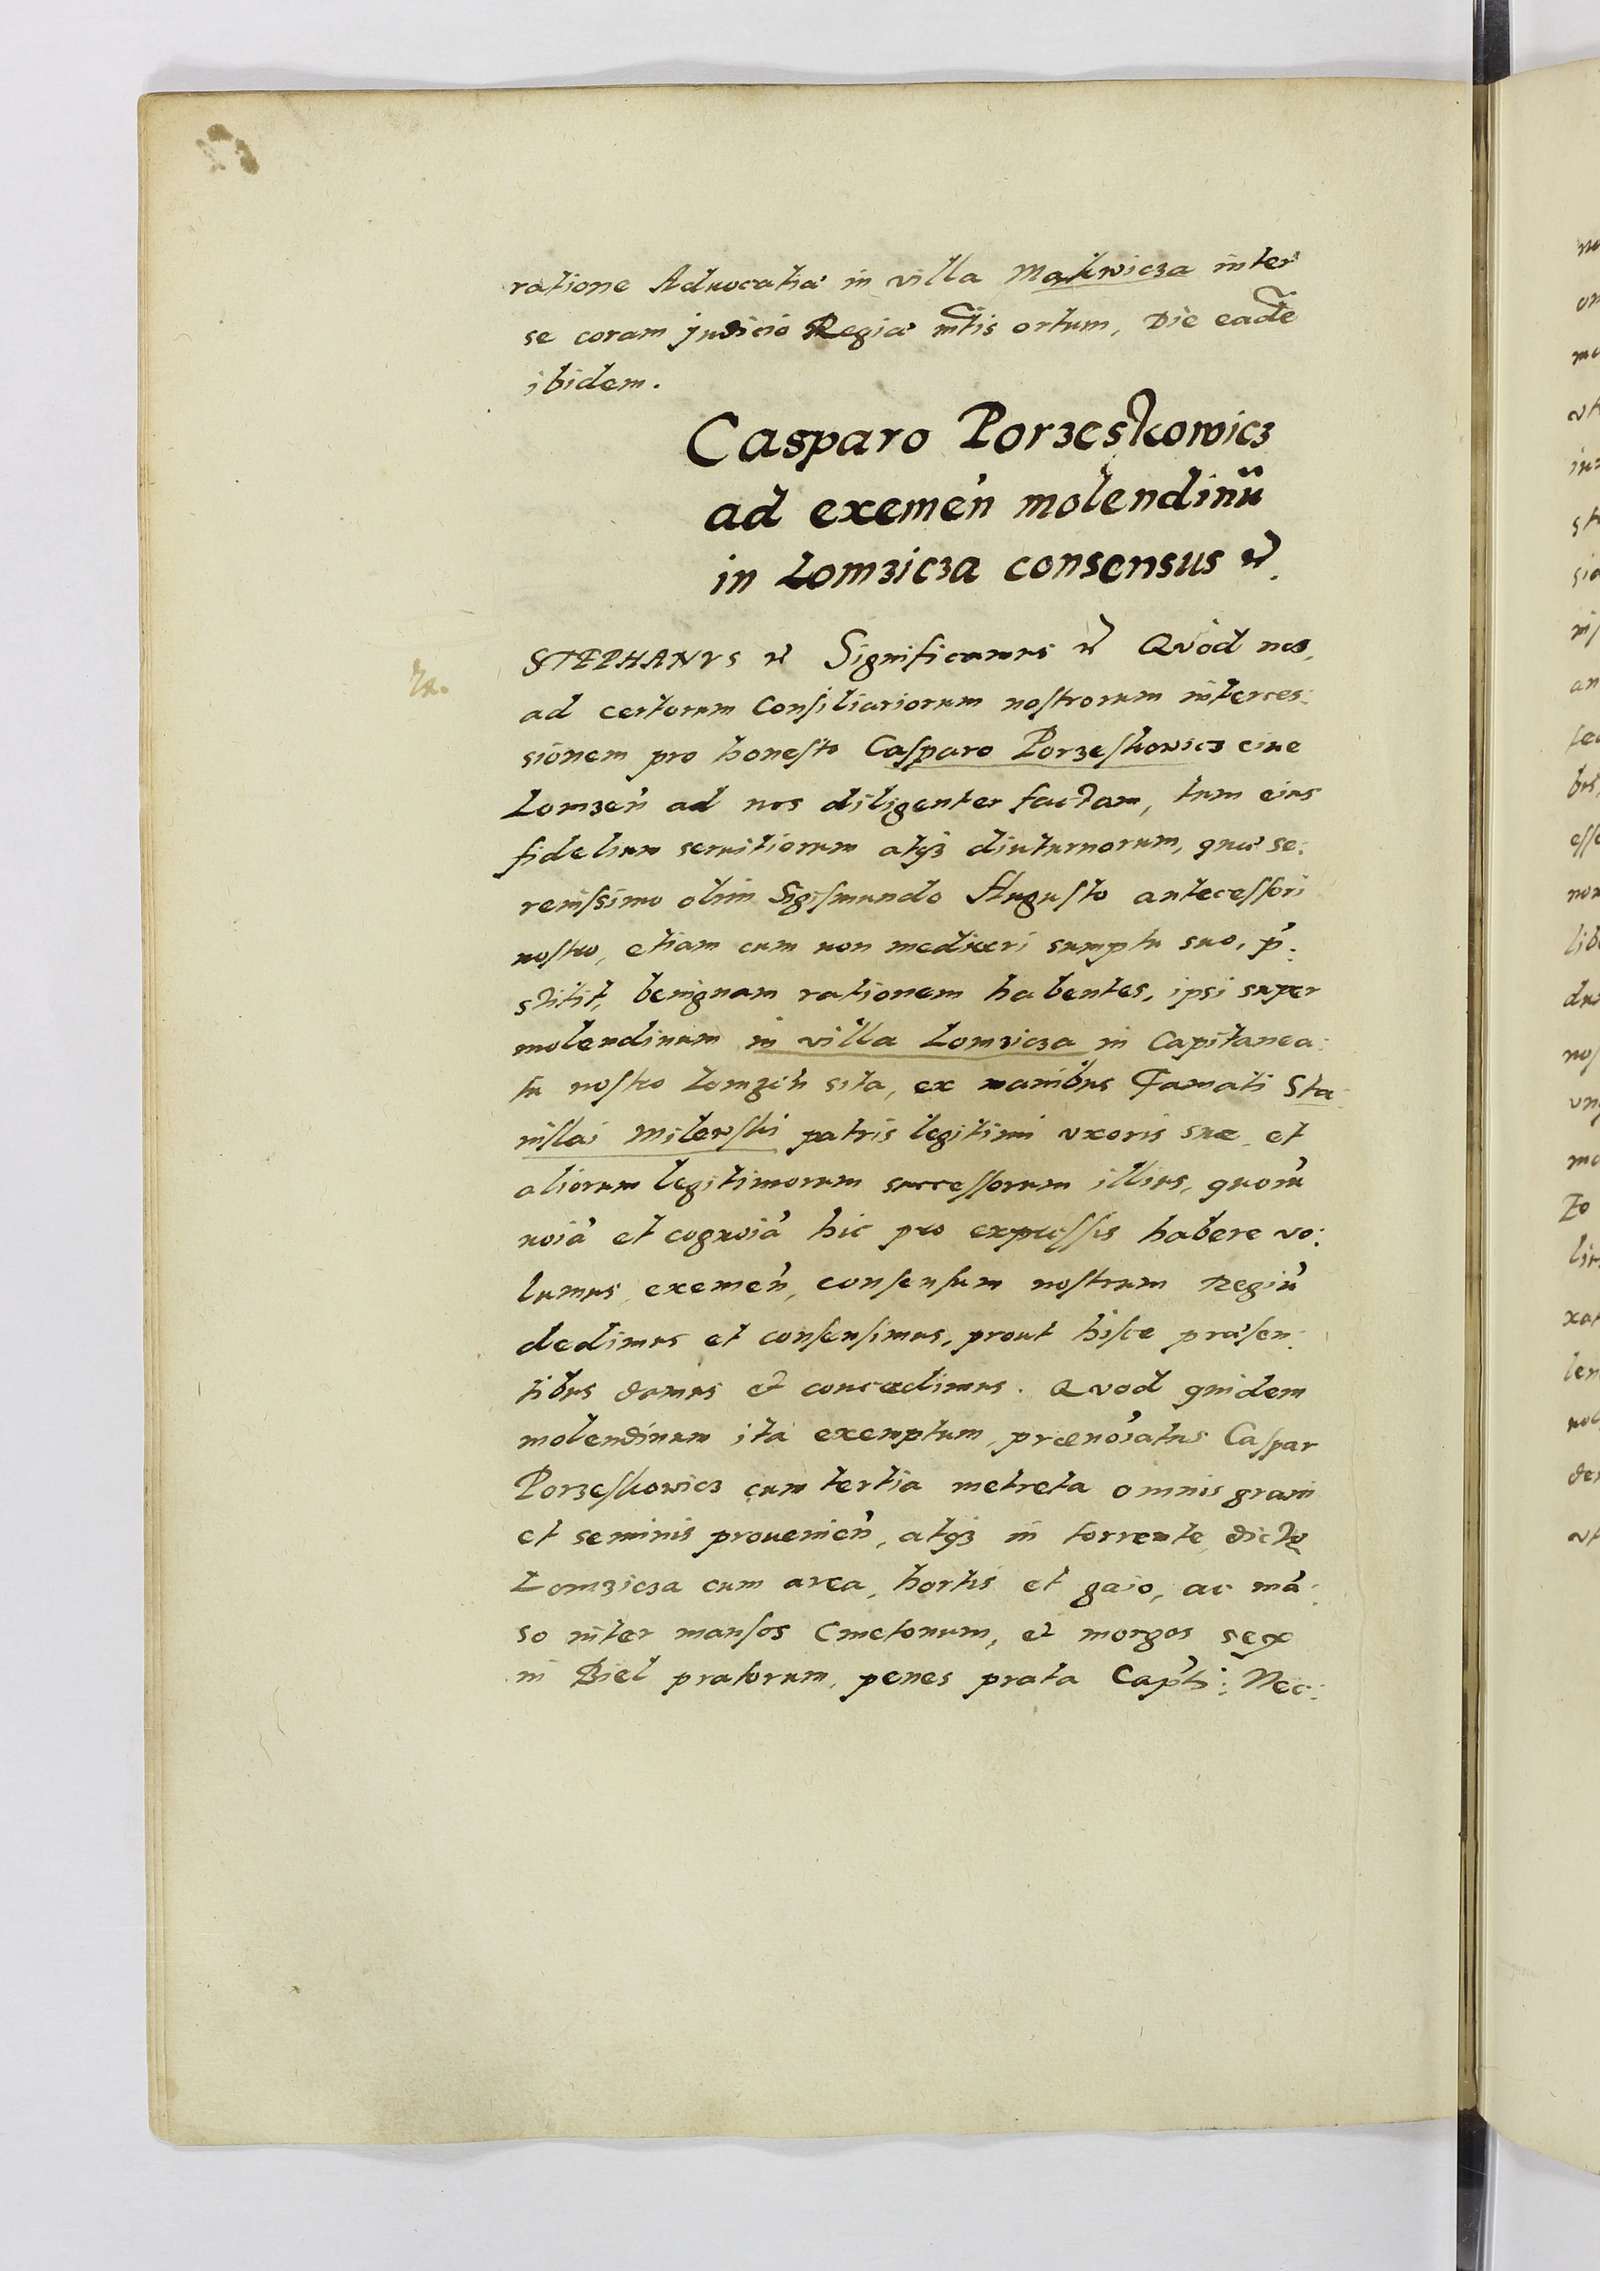 ratione Aduocatiæ in villa Matwicza inter
se coram judicio Regiæ mtis ortum, Die eadē
ibidem.
Casparo Porzeskowicz
ad exemen̄ molendinū
in Lomzicza consensus
STEPHANVS Significamus Quod nos,
ad certorum Consiliariorum nostrorum interces:
sionem pro honesto Casparo Porzeskowicz ciue
Lomzen̄ ad nos diligenter factam, tum eius
fidelium seruitiorum atq3 diuturnorum, quæ se:
renissimo olim Sigismundo Augusto antecessori
nostro, etiam cum non mediocri sumptu suo, p̄:
stitit, benignam rationem habentes, ipsi super
molendinum in villa Lomzicza in Capitanea:
tu nostro Lomzen̄ sita, ex manibus Famati Sta
nislai Milewski patris legitimi vxoris suæ et
aliorum legitimorum successorum illius, quorū
noīa et cognoīa hic pro expressis habere vo:
lumus, exemen̄, consensum nostrum Regiū
dedimus et consensimus, prout hisce præsen:
tibus damus et concedimus. Quod quidem
molendinum ita exemptum, prænoīatus Caspar
Porzeskowicz cum tertia metreta omnis grani
et seminis prouenien̄, atq3 in torrente dicto
Lomzicza cum area, hortis et gaio, ac mā:
so inter mansos Cmetonum, et morgos sex
in Biel pratorum, penes prata Capti: Nec: